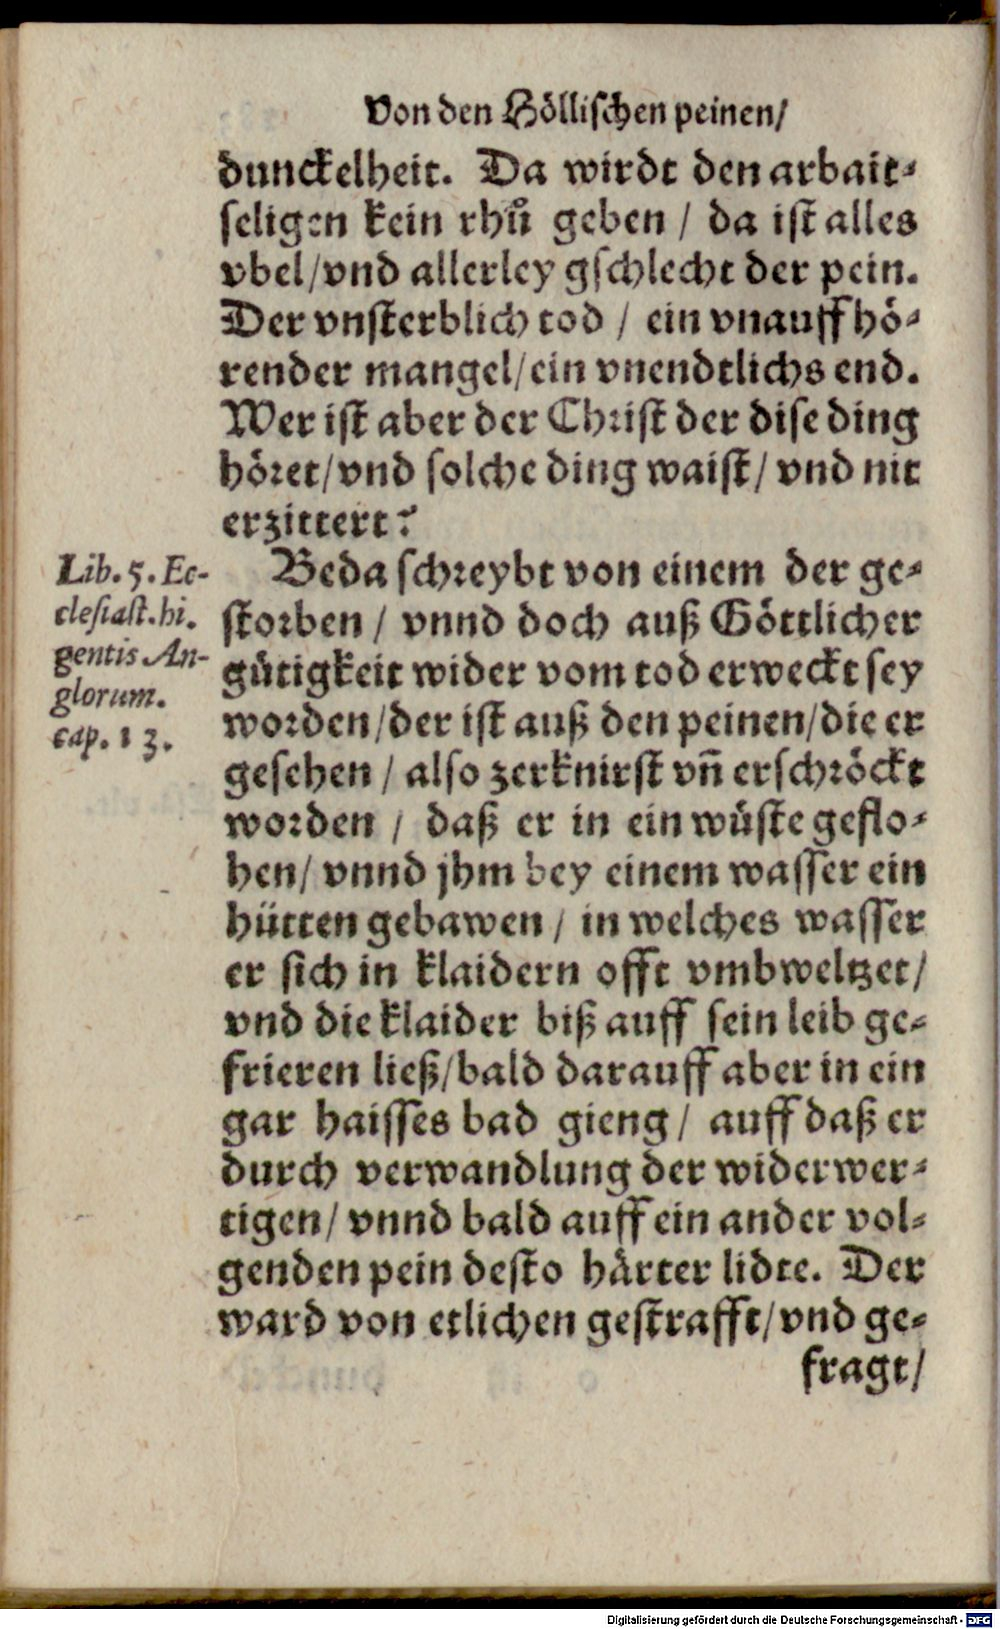 Von den Höllischen peinen/
dunckelheit. Da wirdt den arbait⸗
seligen kein rhů geben / da ist alles
vbel/vnd allerley gschlecht der pein.
Der vnsterblich tod / ein vnauffhö⸗
render mangel/ein vnendtlichs end.
Wer ist aber der Christ der dise ding
höret/vnd solche ding waist/ vnd nit
erzittert?
Lib. 5. Ec-
clesiast. hi.
gentis An-
glorum.
cap. 13.
Beda schreybt von einem der ge⸗
storben / vnnd doch auß Göttlicher
gütigkeit wider vom tod erweckt sey
worden/der ist auß den peinen/die er
gesehen / also zerknirst vñ erschröckt
worden / daß er in ein wüste geflo⸗
hen/ vnnd jhm bey einem wasser ein
hütten gebawen / in welches wasser
er sich in klaidern offt vmbweltzet/
vnd die klaider biß auff sein leib ge⸗
frieren ließ/bald darauff aber in ein
gar haisses bad gieng / auff daß er
durch verwandlung der widerwer⸗
tigen/ vnnd bald auff ein ander vol⸗
genden pein desto härter lidte. Der
ward von etlichen gestrafft/vnd ge⸗
fragt/
Digitalisierung gefördert durch die Deutsche Forschungsgemeinschaft - DFG